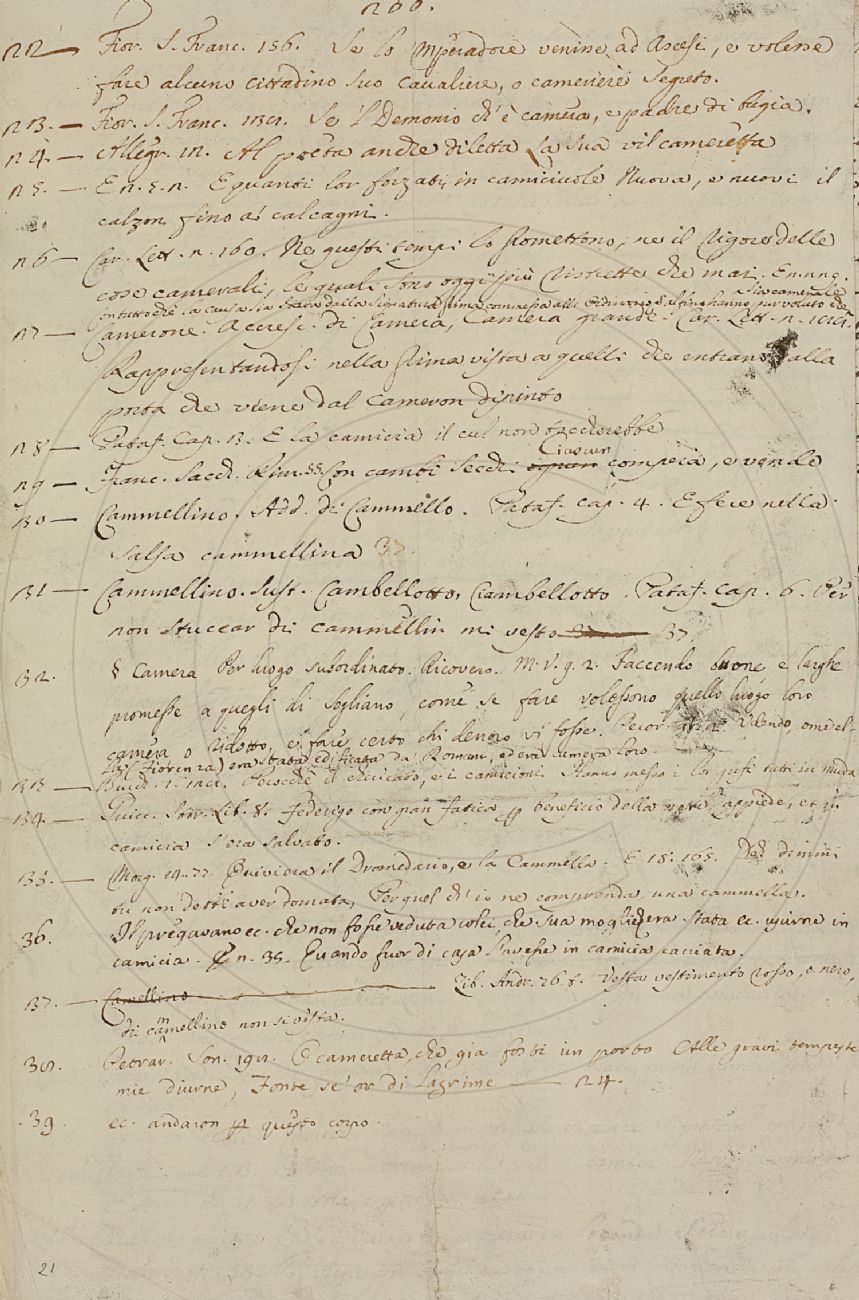 200.
122 — Fior. S. Franc. 156. Se lo Mperadore venisse ad Ascesi, e volesse
fare alcuno cittadino suo cavaliere, o cameriere segreto.
123. — Fior. S. Franc. Se 'l Demonio ch'è camera, e padre di bugia.
124. — Allegr. Al poeta anche diletta La sua vil cameretta
125. — E quanti lor forzati, in camiciuole Nuova, e nuovi il
calzon fino a' calcagni.
126 — Car. Lett. n. 160. Ne questi tempi lo promettono, ne il rigore delle
cose camerali, le quali sono oggi più ristrette che mai.
127 — Camerone. Accresc. di Camera, Camera grande. Car. Lett. n.
Rappresentandosi nella prima vista a quelli che entrano dalla
porta che viene dal cameron dipinto
128 — Pataf. Cap. E la camicia il cul non toccherebbe
Ciascun
129 — Franc. Sacch. Rim. 55 Con cambi secchi ognun compera, e vende
130 — Cammellino. Add. di Cammello. Pataf. cap. 4. E fece nella
salsa cammellina 37.
131 — Cammellino. Sust. Cambellotto, Ciambellotto. Pataf. cap. 6. Per
non stuccar di cammellin mi vesto 37.
132. § Camera Per luogo subordinato. Ricovero. M. V. 9. 2. Faccendo buone e larghe
promesse a quegli di Sogliano, come se fare volessono quello luogo loro
camera o ridotto, e fare certo chi dentro vi fosse. Pecor. Vilendo, ome el-
la (Fiorenza) era stata edificata da' Romani, ed era camera loro.
133 — il chericato, e i camicioni Hanno messo i lor tutti in muda
134 — Guicc. Stor. Lib. 8. Federigo con gran fatica p beneficio della notte, appiede, et in
camicia s'era salvato.
135. — Morg. 14. 77. Quivi era il Dromedario, e la Cammella. E 18. 165. dimmi
tu non detti aver domata, Per quel ch'io ne comprenda una cammella.
36. Il pregavano ec. che non fosse veduta colei, che sua moglie era stata ec. uscirne in
camicia. E n. 38. Quando fuor di casa l'avesse in camicia cacciata.
137. — Camellino — Lib. Andr. 26. 8. Vesta vestimento rosso, o nero,
di cammellino non si vesta.
38. Petrar. Son. O cameretta, che già fosti un porto Alle gravi tempeste
mie diurne, Fonte se' or di lagrime — 24.
39. ec. andaron p questo corpo.
21